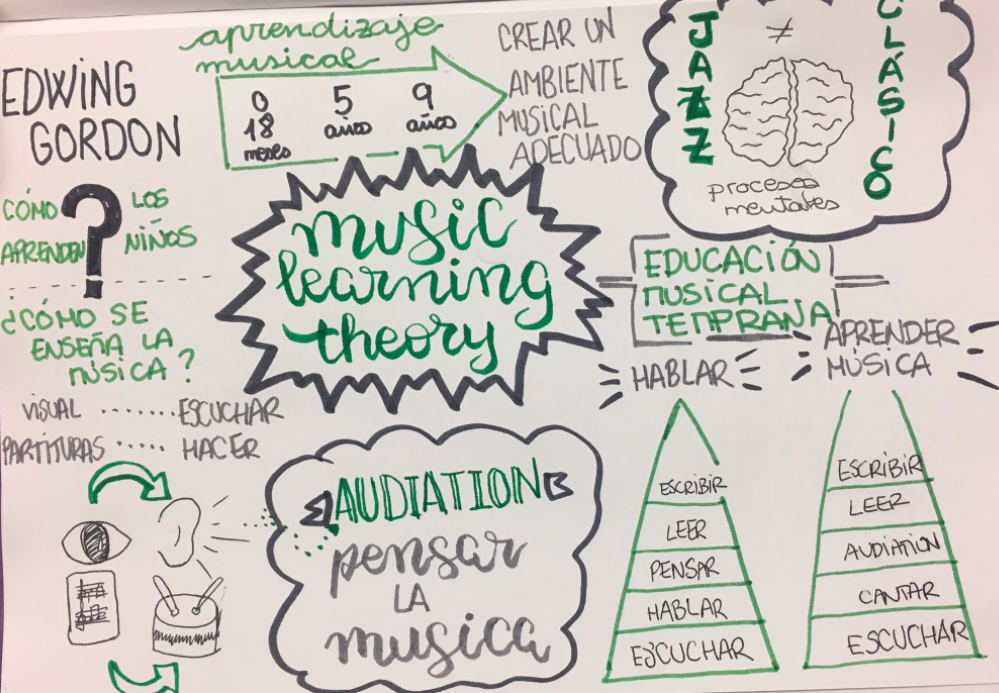 EDWING
GORDON
aprendizaje
musical
0
18
meses
5
años
9
años
CREAR UN
AMBIENTE
MUSICAL
ADECUADO
JAZZ
≠
CLÁSICO
procesos
mentales
CÓMO
APRENDEN
?
LOS
NIÑOS
¿CÓMO SE
ENSEÑA LA
MÚSICA?
VISUAL ....... ESCUCHAR
PARTITURAS ..... HACER
music
learning
theory
EDUCACIÓN
MUSICAL
TEMPRANA
HABLAR
ESCRIBIR
LEER
PENSAR
HABLAR
ESCUCHAR
APRENDER
MÚSICA
ESCRIBIR
LEER
AUDIATION
CANTAR
ESCUCHAR
AUDIATION
pensar
LA
musica